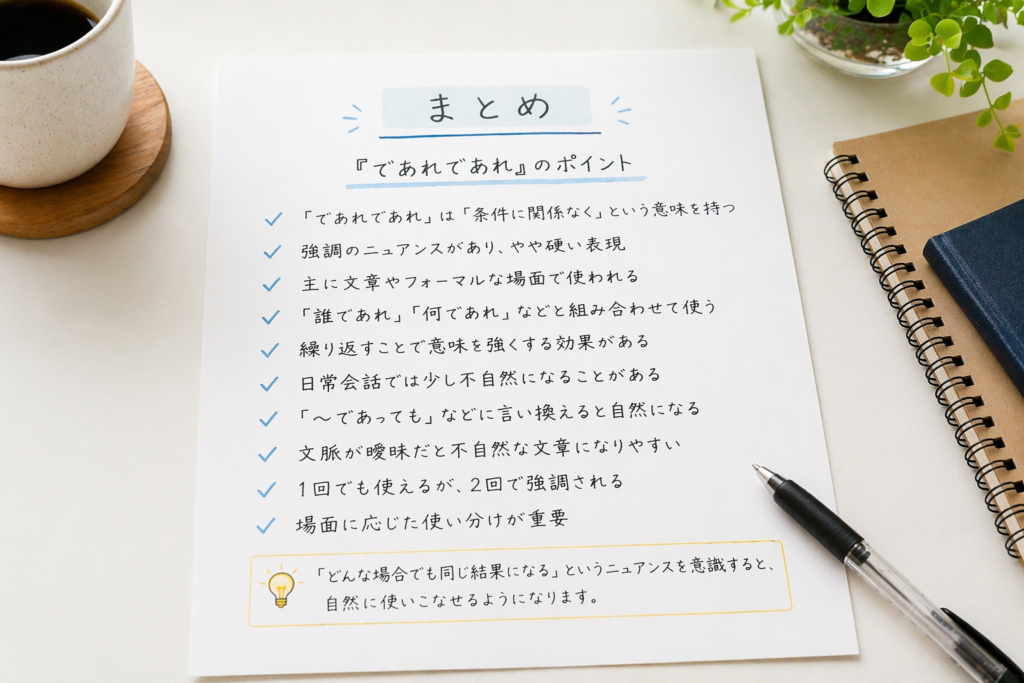 まとめ
『であれであれ』のポイント
「であれであれ」は「条件に関係なく」という意味を持つ
強調のニュアンスがあり、やや硬い表現
主に文章やフォーマルな場面で使われる
「誰であれ」「何であれ」などと組み合わせて使う
繰り返すことで意味を強くする効果がある
日常会話では少し不自然になることがある
「～であっても」などに言い換えると自然になる
文脈が曖昧だと不自然な文章になりやすい
1回でも使えるが、2回で強調される
場面に応じた使い分けが重要
「どんな場合でも同じ結果になる」というニュアンスを意識すると、
自然に使いこなせるようになります。